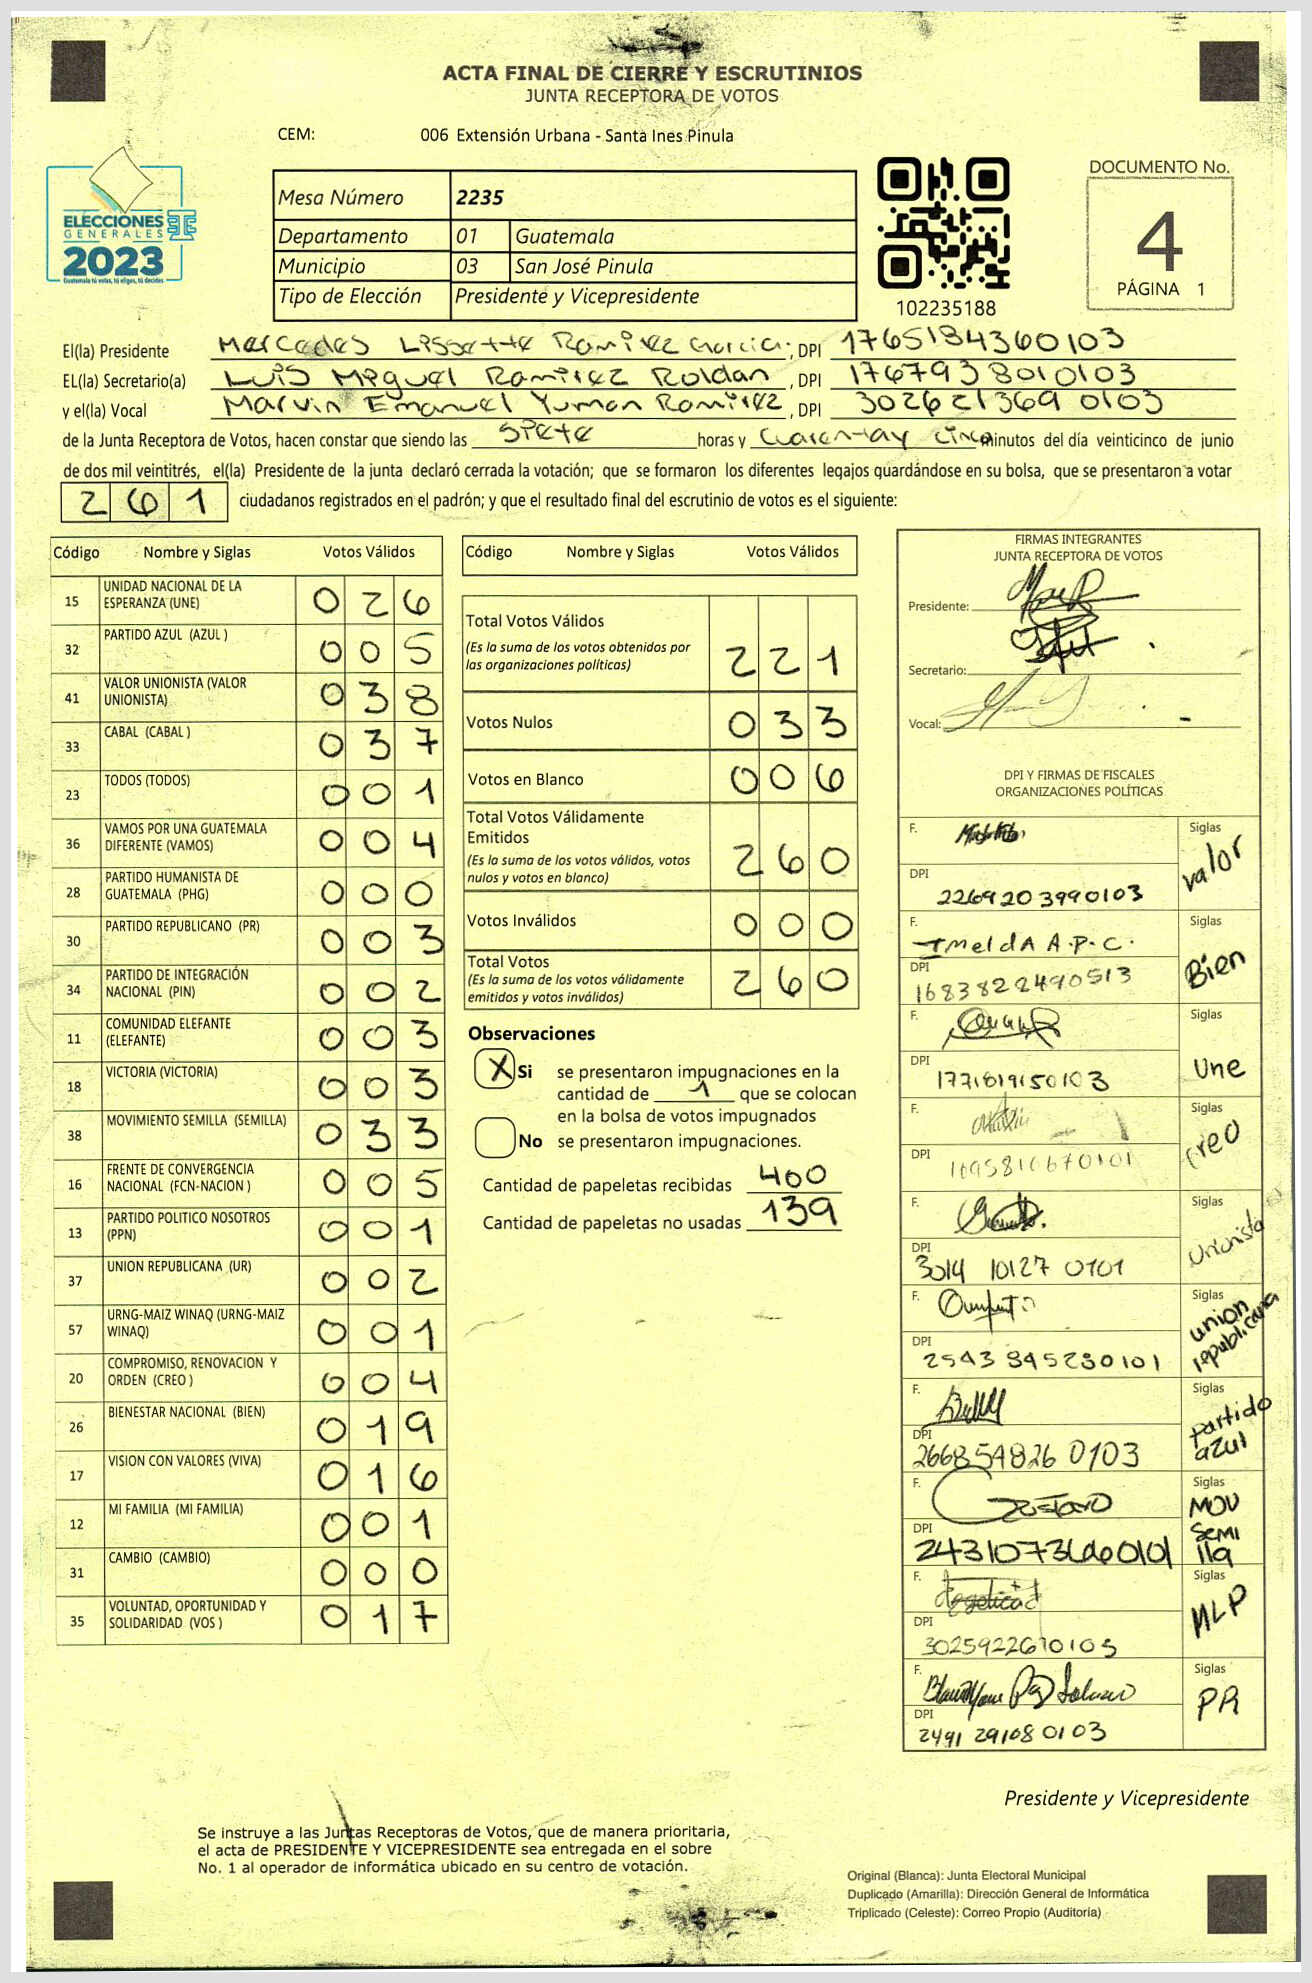 ACTA FINAL DE CIERRE Y ESCRUTINIOS
JUNTA RECEPTORA DE VOTOS
CEM: 006 Extensión Urbana - Santa Ines Pinula
ELECCIONES
GENERALES
2023
Guatemala tú votas, tú eliges, tú decides
Mesa Número 2235
Departamento 01 Guatemala
Municipio 03 San José Pinula
Tipo de Elección Presidente y Vicepresidente
102235188
DOCUMENTO No.
4
PÁGINA 1
El(la) Presidente Mercedes Lissette Ramirez Garcia, DPI 1765184360103
EL(la) Secretario(a) Luis Miguel Ramirez Roldan, DPI 1767938010103
y el(la) Vocal Marvin Emanuel Yuman Ramirez, DPI 3026213690103
de la Junta Receptora de Votos, hacen constar que siendo las siete horas y cuarentay cinco minutos del día veinticinco de junio
de dos mil veintitrés, el(la) Presidente de la junta declaró cerrada la votación; que se formaron los diferentes legajos quardándose en su bolsa, que se presentaron a votar
261 ciudadanos registrados en el padrón; y que el resultado final del escrutinio de votos es el siguiente:
Código Nombre y Siglas Votos Válidos
15 UNIDAD NACIONAL DE LA ESPERANZA (UNE) 026
32 PARTIDO AZUL (AZUL ) 005
41 VALOR UNIONISTA (VALOR UNIONISTA) 038
33 CABAL (CABAL ) 037
23 TODOS (TODOS) 001
36 VAMOS POR UNA GUATEMALA DIFERENTE (VAMOS) 004
28 PARTIDO HUMANISTA DE GUATEMALA (PHG) 000
30 PARTIDO REPUBLICANO (PR) 003
34 PARTIDO DE INTEGRACIÓN NACIONAL (PIN) 002
11 COMUNIDAD ELEFANTE (ELEFANTE) 003
18 VICTORIA (VICTORIA) 003
38 MOVIMIENTO SEMILLA (SEMILLA) 033
16 FRENTE DE CONVERGENCIA NACIONAL (FCN-NACION ) 005
13 PARTIDO POLITICO NOSOTROS (PPN) 001
37 UNION REPUBLICANA (UR) 002
57 URNG-MAIZ WINAQ (URNG-MAIZ WINAQ) 001
20 COMPROMISO, RENOVACION Y ORDEN (CREO ) 004
26 BIENESTAR NACIONAL (BIEN) 019
17 VISION CON VALORES (VIVA) 016
12 MI FAMILIA (MI FAMILIA) 001
31 CAMBIO (CAMBIO) 000
35 VOLUNTAD, OPORTUNIDAD Y SOLIDARIDAD (VOS ) 017
Código Nombre y Siglas Votos Válidos
Total Votos Válidos 221
(Es la suma de los votos obtenidos por
las organizaciones políticas)
Votos Nulos 033
Votos en Blanco 006
Total Votos Válidamente
Emitidos 260
(Es la suma de los votos válidos, votos
nulos y votos en blanco)
Votos Inválidos 000
Total Votos 260
(Es la suma de los votos válidamente
emitidos y votos inválidos)
Observaciones
X Si se presentaron impugnaciones en la
cantidad de 1 que se colocan
en la bolsa de votos impugnados
No se presentaron impugnaciones.
Cantidad de papeletas recibidas 400
Cantidad de papeletas no usadas 139
FIRMAS INTEGRANTES
JUNTA RECEPTORA DE VOTOS
Presidente:
Secretario:
Vocal:
DPI Y FIRMAS DE FISCALES
ORGANIZACIONES POLÍTICAS
F. Siglas valor
DPI 2269203990103
F. Imelda A.P.C. Siglas Bien
DPI 1683822490513
F. Siglas Une
DPI 1771819150103
F. Siglas creo
DPI 1695816670101
F. Siglas Unionista
DPI 3014 10127 0101
F. Siglas union republicana
DPI 2543 845230101
F. Siglas partido azul
DPI 266854826 0103
F. Gustavo Siglas MOV SEMI lla
DPI 2431073660101
F. Siglas MLP
DPI 3025922670103
F. Siglas PR
DPI 2491 29108 0103
Presidente y Vicepresidente
Se instruye a las Juntas Receptoras de Votos, que de manera prioritaria,
el acta de PRESIDENTE Y VICEPRESIDENTE sea entregada en el sobre
No. 1 al operador de informática ubicado en su centro de votación.
Original (Blanca): Junta Electoral Municipal
Duplicado (Amarilla): Dirección General de Informática
Triplicado (Celeste): Correo Propio (Auditoría)